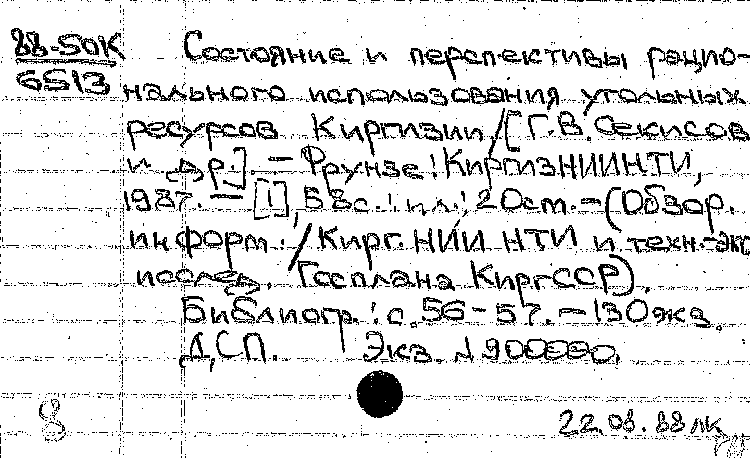 88-50К Состояние и перспективы рацио-
6513 нального использования угольных
ресурсов Киргизии / [Г.В. Секисов
и др.]. — Фрунзе : КиргизНИИНТИ,
1987. — [1], 58 с. : ил. ; 20 см. — (Обзор.
информ. / Кирг. НИИ НТИ и техн.-эк.
исслед. Госплана КиргССР).
Библиогр.: с. 56-57. — 130 экз.
ДСП. Экз. №00000.
8
22.08.88 лк